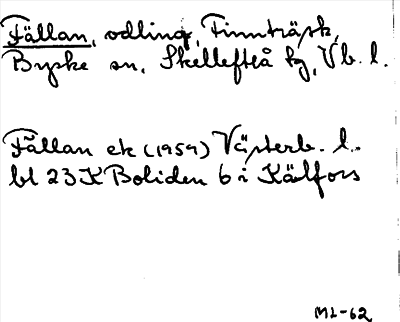 Fällan, odling, Finnträsk,
Byske sn, Skellefteå kg, Vb. l.
Fällan ek (1959) Västerb. l.
bl 23K Boliden 6 i Kälfors
ML-62